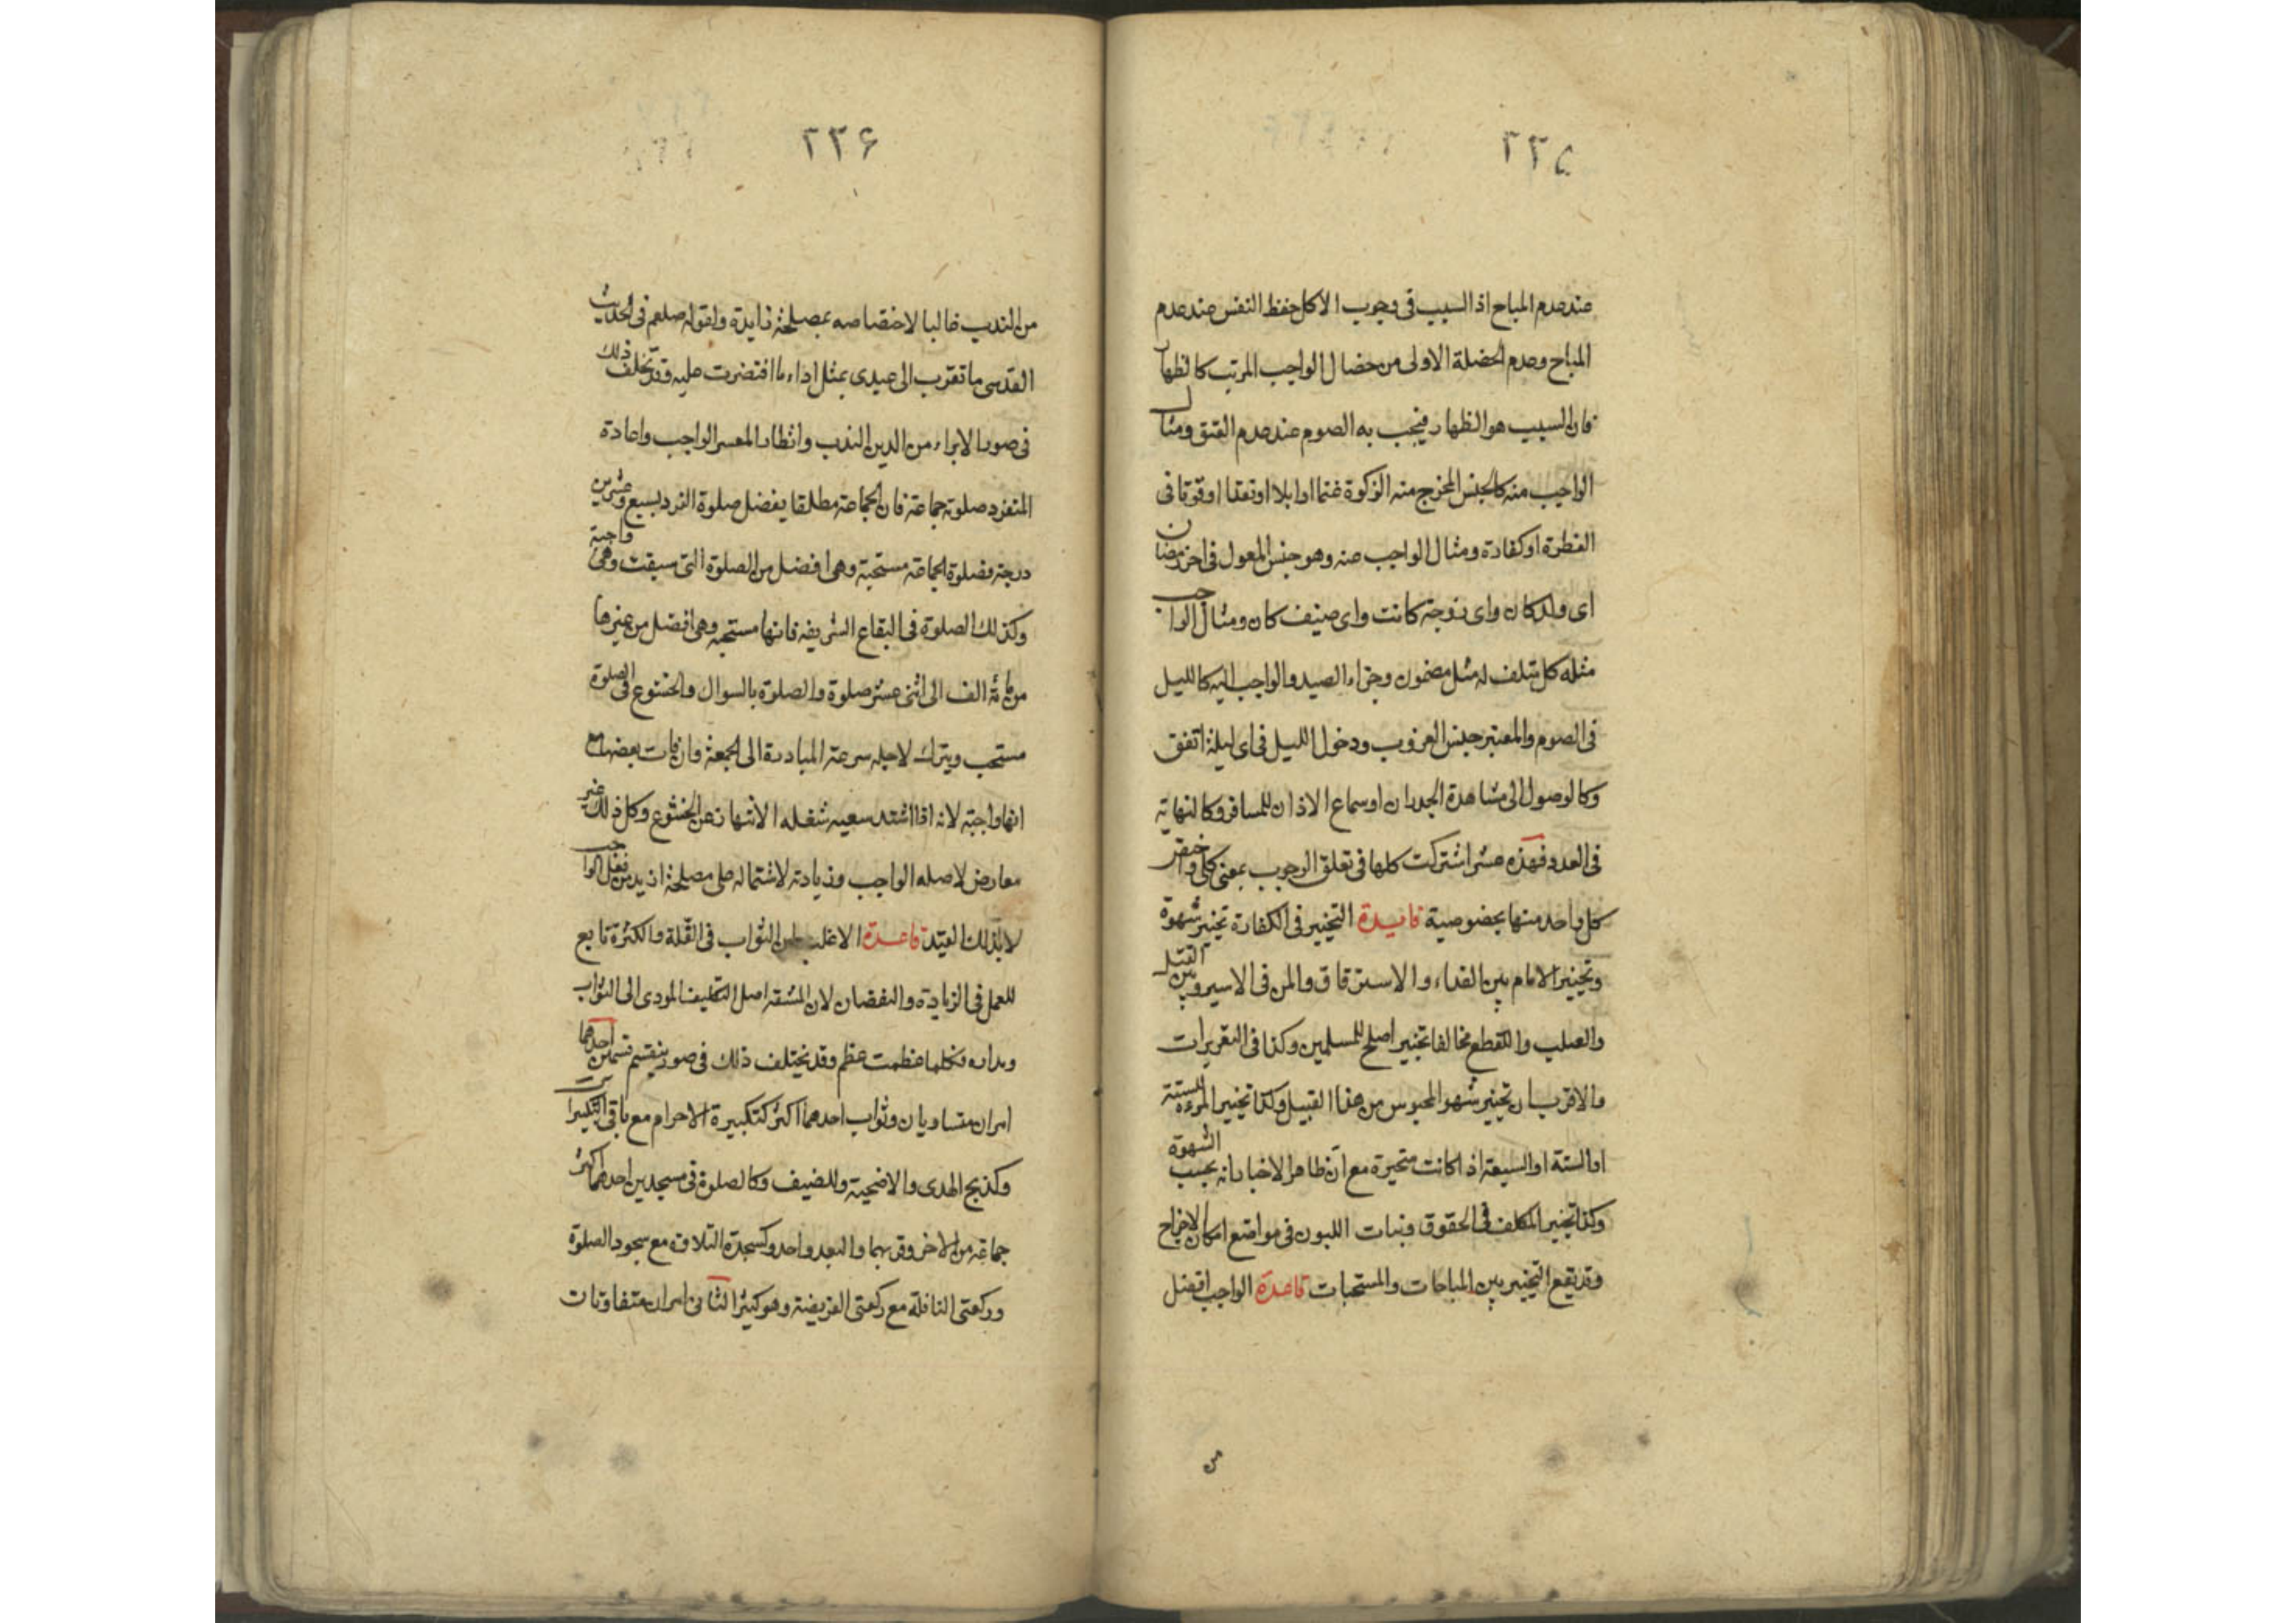 ٢٣٥
عند عدم المباح اذ السبب فى وجوب الاكل حفظ النفس عند عدم
المباح وعدم الخصلة الاولى من خصال الواجب المرتب كالظهار
فان السبب هو الظهار فيجب به الصوم عند عدم العتق ومثال
الواجب منه كالجنس المخرج منه الزكوة غنما او ابلا او نقدا او قوتا فى
الفطرة او كفارة ومثال الواجب عنه وهو جنس المعول فى اخر رمضان
اى ولد كان واى زوجة كانت واى ضيف كان ومثال الواجب
مثله كل متلف له مثل مضمون وجزاء الصيد والواجب اليه كالليل
فى الصوم والمعتبر جنس الغروب ودخول الليل فى اى ليلة اتفق
وكالوصول الى مشاهدة الجدران او سماع الاذان للمسافر وكالنهاية
فى العدد فهذه عشر اشتركت كلها فى تعلق الوجوب بمعنى كلى واختص
كل واحد منها بخصوصية فايدة التخيير فى الكفارة تخيير شهوة
وتخيير الامام بين الفداء والاسترقاق والمن فى الاسير وبين القتل
والصلب والقطع مخالفا تخيير اصلح للمسلمين وكذا فى التعزيرات
والاقرب ان تخيير شهو المحبوس من هذا القبيل وكذا تخيير المرءة الستة
او الستة او السبعة اذا كانت متحيرة مع ان ظاهر الاخبار انه بحسب الشهوة
وكذا تخيير المكلف فى الحقوق وبنات اللبون فى مواضع امكان الاخراج
وقد يقع التخيير بين المباحات والمستحبات قاعدة الواجب افضل
من
٢٣۶
من الندب غالبا لاختصاصه بمصلحة زايدة ولقوله صلعم فى الحديث
القدسى ما تقرب الى عبدى بمثل اداء ما افترضت عليه وقد تخلف ذلك
فى صور الابراء من الدين الندب وانظار المعسر الواجب واعادة
المنفرد صلوته جماعة فان الجماعة مطلقا يفضل صلوة الفرد بسبع وعشرين
درجة فصلوة الجماعة مستحبة وهى افضل من الصلوة التى سبقت وهى واجبة
وكذلك الصلوة فى البقاع الشريفه فانها مستحبه وهى افضل من غيرها
من مائة الف الى اثنى عشر صلوة والصلوة بالسوال والخشوع فى الصلوة
مستحب ويترك لاجله سرعة المبادرة الى الجمعة وان فات بعضها مع
انها واجبة لانه اذا اشتد سعيه شغله الانتهار عن الخشوع وكل ذلك غير
معارض لاصله الواجب وزيادته لاشتماله على مصلحة ازيد من فعل الواجب
لا بذلك القيد قاعدة الاغلب ان الثواب فى القلة والكثرة تابع
للعمل فى الزيادة والنقصان لان المشقه اصل التكليف المودى الى الثواب
ومداره فكلما عظمت عظم وقد يختلف ذلك فى صور ينقسم قسمين احدهما
امران متساويان وثواب احدهما اكثر كتكبيرة الاحرام مع باقى التكبيرات
وكذبح الهدى والاضحية وللضيف وكالصلوة فى مسجدين احدهما اكثر
جماعة من الاخر وقربهما والبعد واحد وكسجدة التلاوة مع سجود الصلوة
وركعتى النافلة مع ركعتى الفريضة وهو كثير الثانى امران متفاوتات